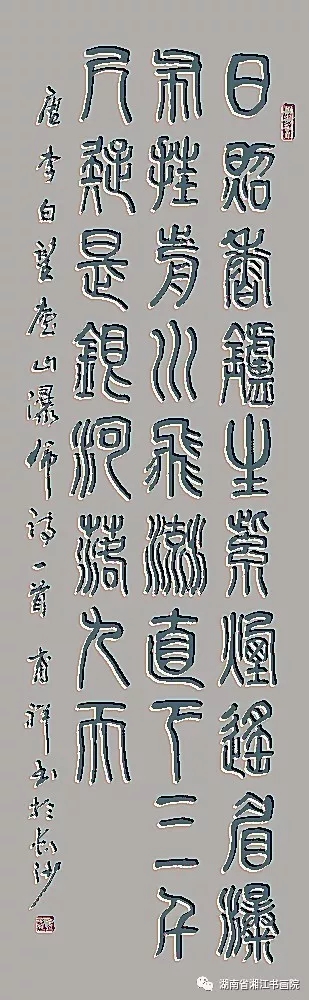 日照香鑪生紫煙遙看瀑
布挂前川飛流直下三千
尺疑是銀河落九天
唐李白望廬山瀑佈詩一首 祥書於長沙
湖南省湘江书画院